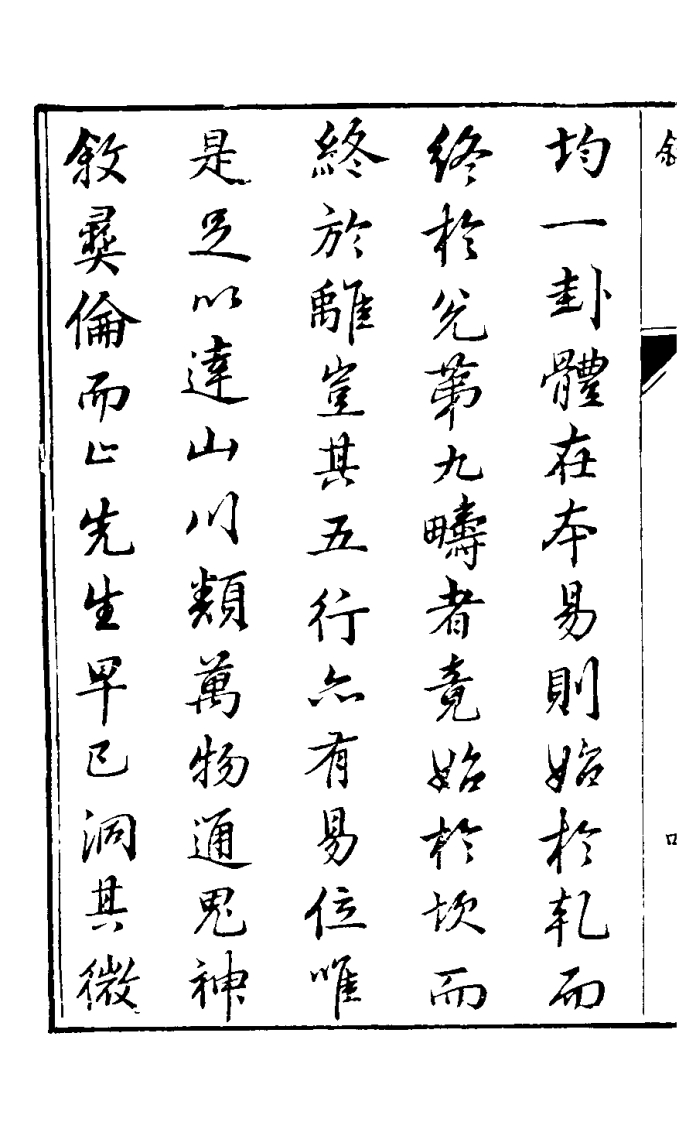 均一卦體在本易則始於乾而
終於兌第九疇者竟始於坎而
終於離豈其五行亦有易位唯
是足以達山川類萬物通鬼神
敘彝倫而止先生早已洞其微